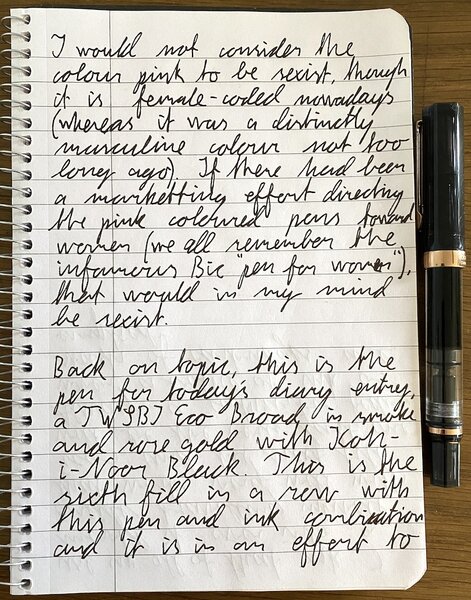 I would not consider the
colour pink to be sexist, though
it is female-coded nowadays
(whereas it was a distinctly
masculine colour not too
long ago). If there had been
a marketting effort directing
the pink coloured pens toward
women (we all remember the
infamous Bic "pen for women"),
that would in my mind
be sexist.
Back on topic, this is the
pen for today's diary entry,
a TWSBI Eco Broad in smoke
and rose gold with Koh-
i-Noor Black. This is the
sixth fill in a row with
this pen and ink combination
and it is in an effort to